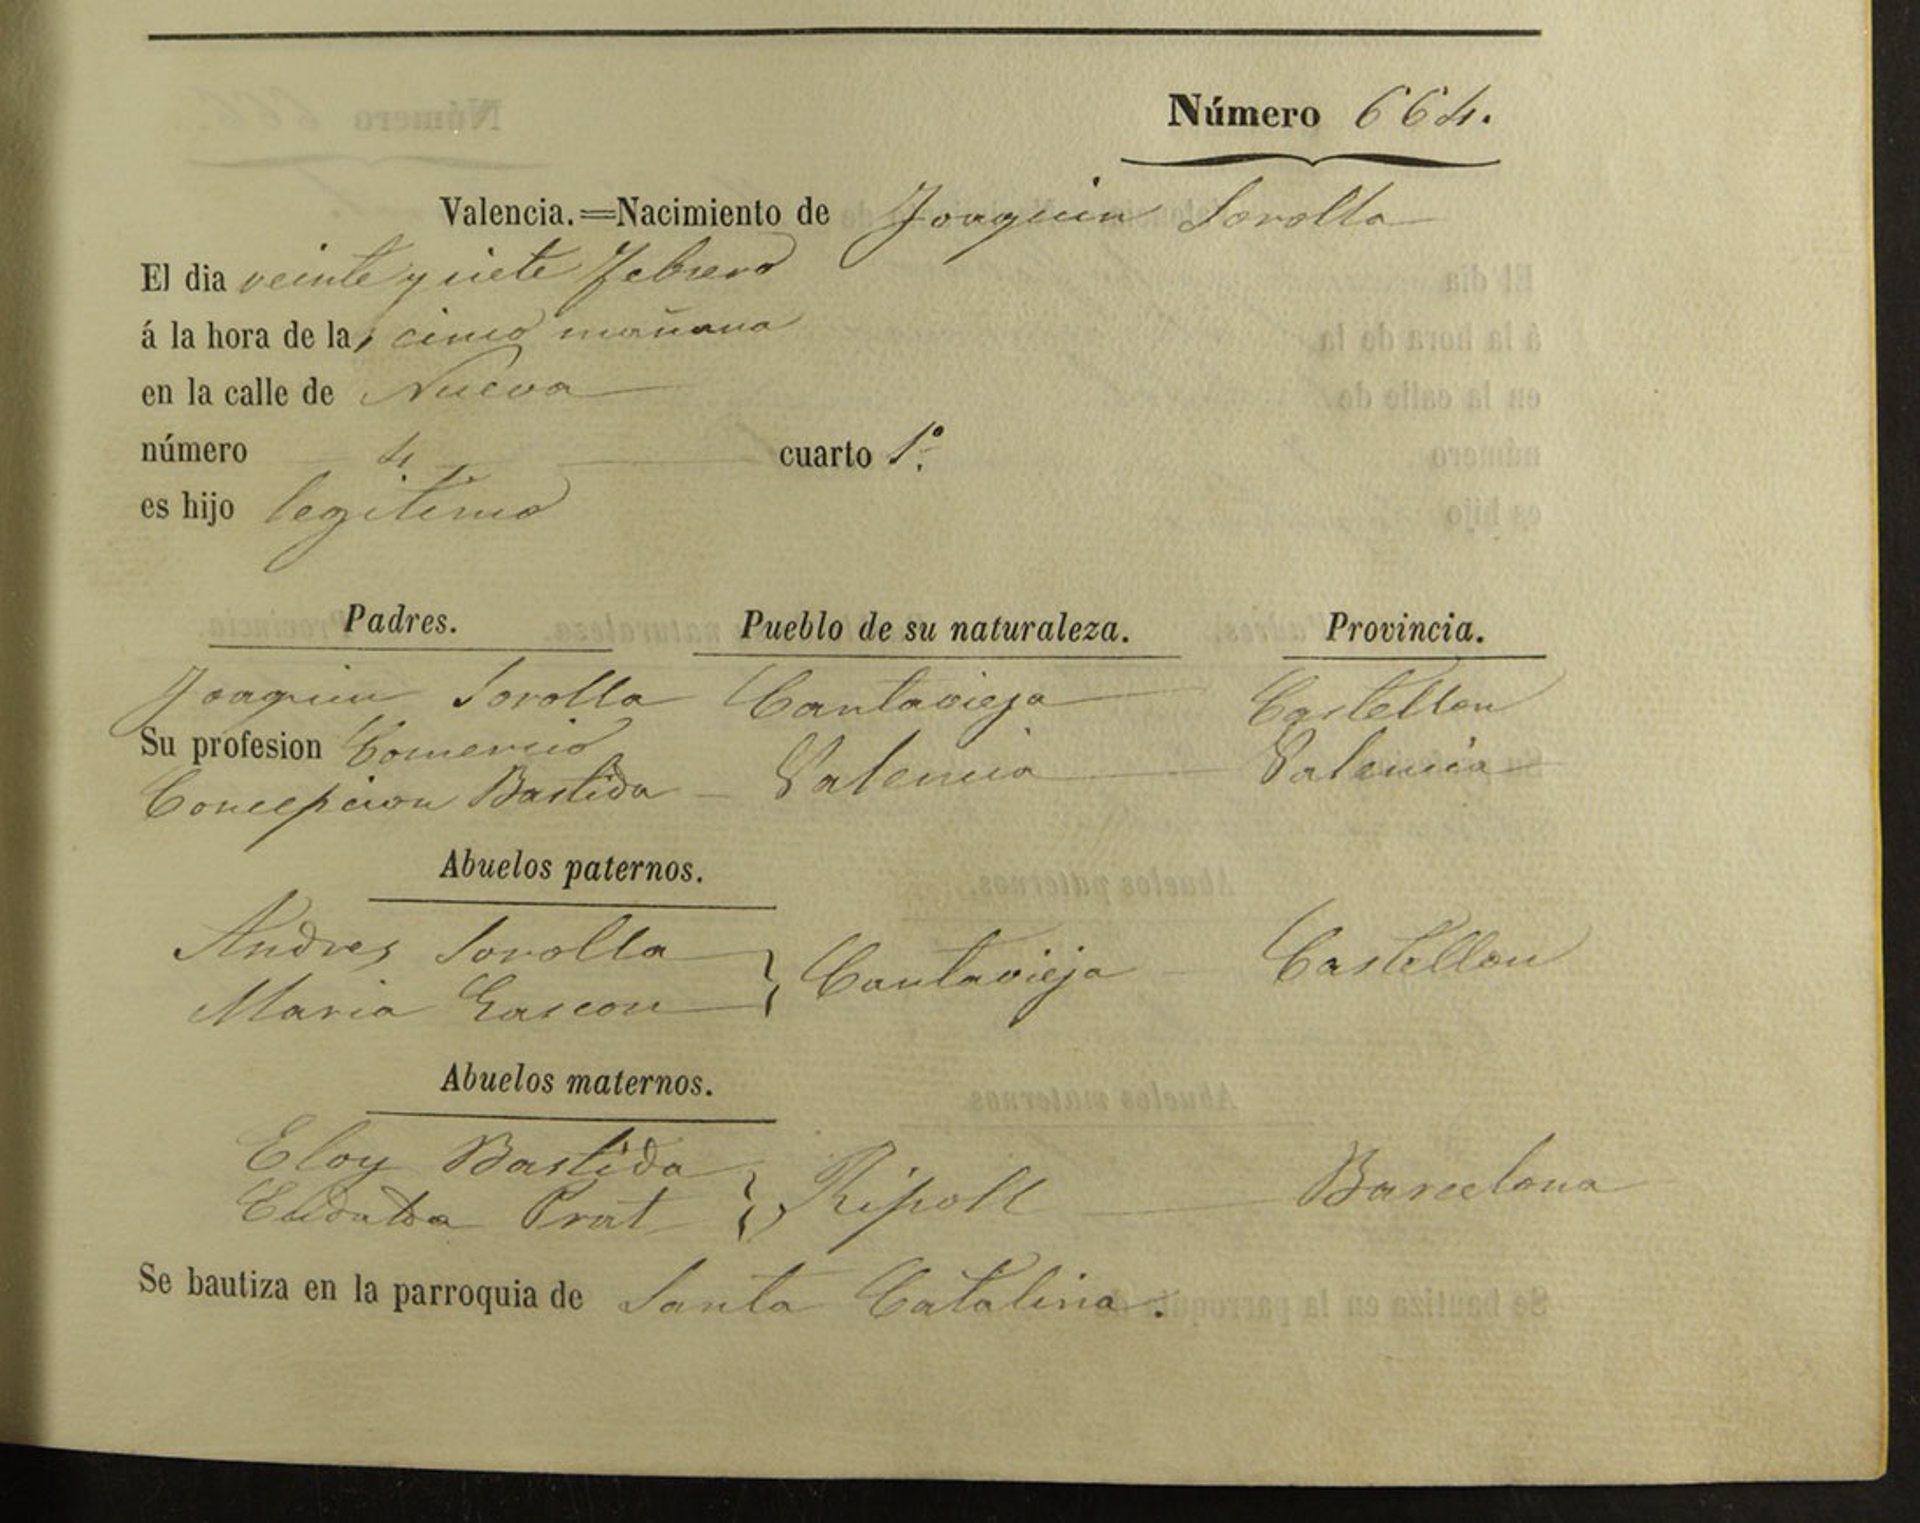 Número 664.
Valencia.=Nacimiento de Joaquin Sorolla
El dia veinte y siete Febrero
á la hora de las cinco mañana
en la calle de Nueva
número 4 cuarto 1º.
es hijo legitimo
Padres. Pueblo de su naturaleza. Provincia.
Joaquin Sorolla Cantavieja Castellon
Su profesion Comercio
Concepcion Bastida Valencia Valencia
Abuelos paternos.
Andres Sorolla
Maria Gascon } Cantavieja Castellon
Abuelos maternos.
Eloy Bastida
Prat } Ripoll Barcelona
Se bautiza en la parroquia de Santa Catalina.